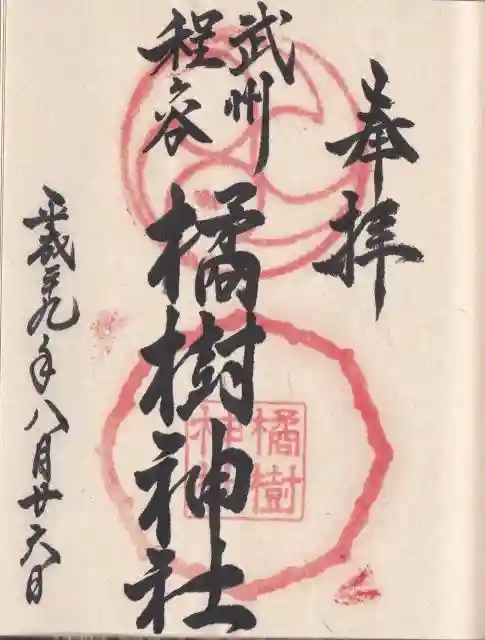 奉拝
武州
程ヶ谷
橘樹神社
平成二十九年八月廿六日
橘樹
神社